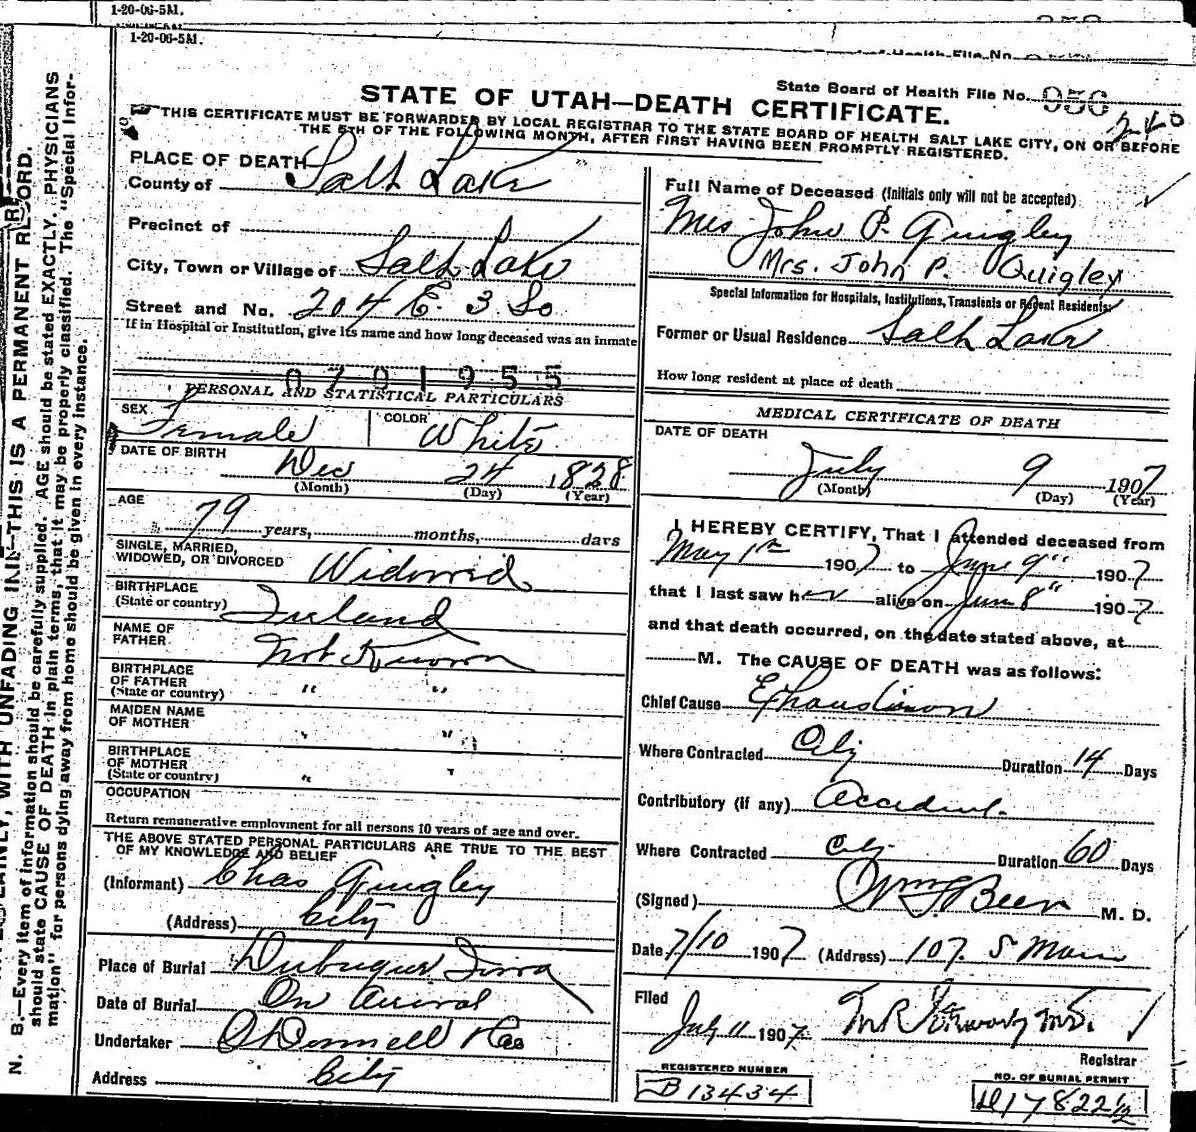 1-20-06-5M.
1-20-06-5M.
of Health File No.
State Board of Health File No. 956
240
STATE OF UTAH—DEATH CERTIFICATE.
THIS CERTIFICATE MUST BE FORWARDED BY LOCAL REGISTRAR TO THE STATE BOARD OF HEALTH SALT LAKE CITY, ON OR BEFORE
THE 5TH OF THE FOLLOWING MONTH, AFTER FIRST HAVING BEEN PROMPTLY REGISTERED.
PLACE OF DEATH
County of Salt Lake
Precinct of
City, Town or Village of Salt Lake
Street and No. 204 E. 3 So
If in Hospital or Institution, give its name and how long deceased was an inmate
0701955
PERSONAL AND STATISTICAL PARTICULARS
SEX Female COLOR White
DATE OF BIRTH Dec 24 1828
(Month) (Day) (Year)
AGE
79 years, months, days
SINGLE, MARRIED,
WIDOWED, OR DIVORCED Widowed
BIRTHPLACE
(State or country) Ireland
NAME OF
FATHER Not Known
BIRTHPLACE
OF FATHER
(State or country) " "
MAIDEN NAME
OF MOTHER " "
BIRTHPLACE
OF MOTHER
(State or country) " "
OCCUPATION
Return remunerative employment for all persons 10 years of age and over.
THE ABOVE STATED PERSONAL PARTICULARS ARE TRUE TO THE BEST
OF MY KNOWLEDGE AND BELIEF
(Informant) Chas Quigley
(Address) City
Place of Burial Dubuque Iowa
Date of Burial On Arrival
Undertaker O'Donnell & Co
Address City
Full Name of Deceased (Initials only will not be accepted)
Mrs John P. Quigley
Mrs. John P. Quigley
Special Information for Hospitals, Institutions, Transients or Recent Residents:
Former or Usual Residence Salt Lake
How long resident at place of death
MEDICAL CERTIFICATE OF DEATH
DATE OF DEATH
July 9 1907
(Month) (Day) (Year)
I HEREBY CERTIFY, That I attended deceased from
May 1st 1907 to June 9" 1907
that I last saw her alive on June 8" 1907
and that death occurred, on the date stated above, at
M. The CAUSE OF DEATH was as follows:
Chief Cause Exhaustion
Where Contracted City Duration 14 Days
Contributory (if any) Accident.
Where Contracted City Duration 60 Days
(Signed) Wm F Beer M. D.
Date 7/10 1907 (Address) 107. S Main
Filed
July 11 1907 M.D.
Registrar
REGISTERED NUMBER
B 13434
NO. OF BURIAL PERMIT
D17822½
N. B.—Every item of information should be carefully supplied. AGE should be stated EXACTLY. PHYSICIANS
should state CAUSE OF DEATH in plain terms, that it may be properly classified. The "Special Infor-
mation" for persons dying away from home should be given in every instance.
PLAINLY, WITH UNFADING INK—THIS IS A PERMANENT RECORD.